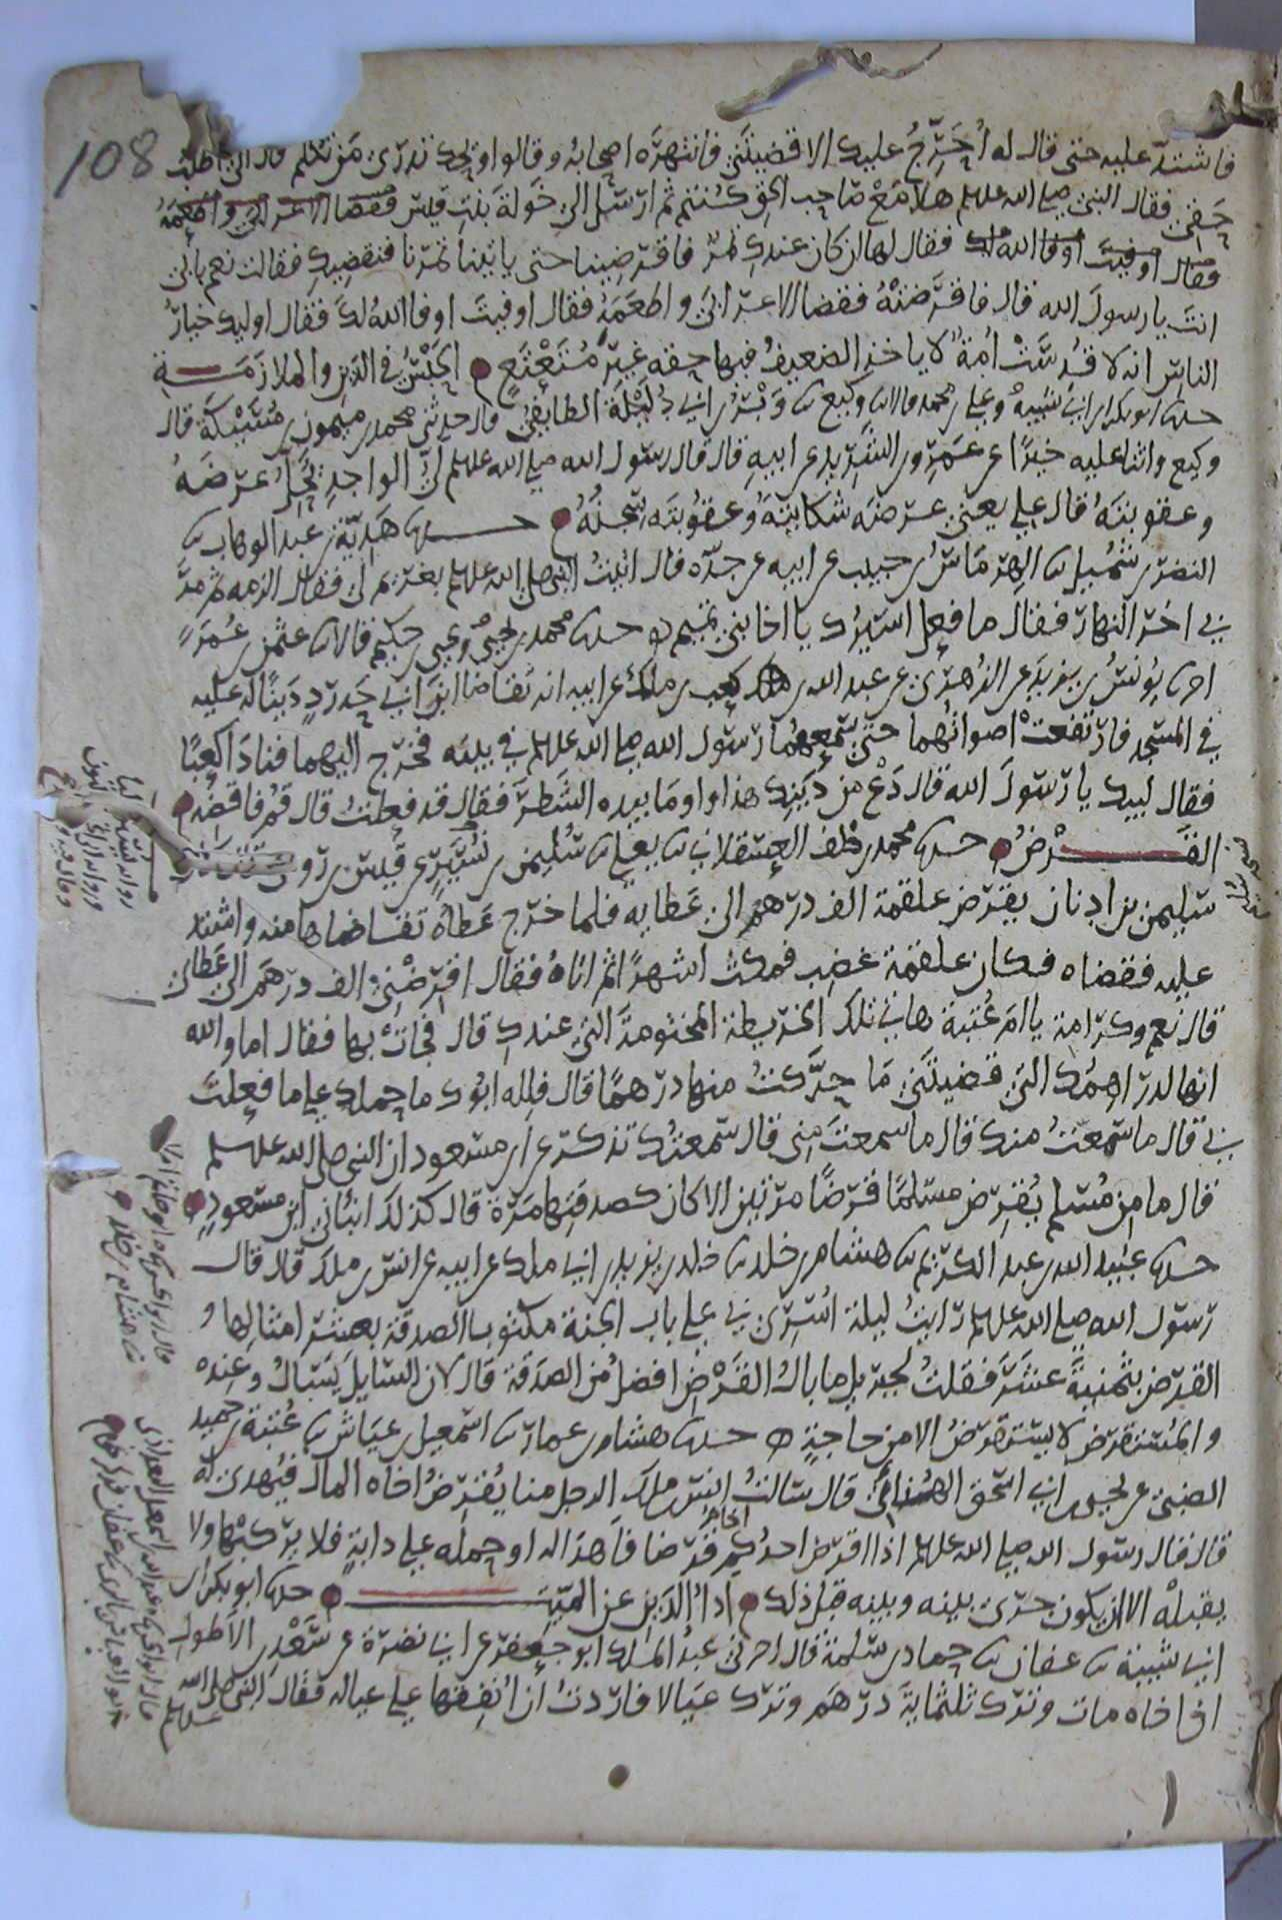 108
فاشتد عليه حتى قال له أحرج عليك الا قضيتني فانتهره اصحابه وقالوا ويحك تدري من تكلم قال اني اطلب
حقي فقال النبي صلى الله علىه وسلم هلا مع صاحب الحق كنتم ثم ارسل الى خولة بنت قيس
فقال لها ان كان عندك تمر فاقرضينا حتى ياتينا تمرنا فنقضيك فقالت نعم بابي
انت يا رسول الله قال فاقرضته فقضا الاعرابي واطعمه فقال اوفيت اوفا الله لك فقال اوليك خيار
الناس انه لا قدست أمة لا ياخذ الضعيف فيها حقه غير متعتع الحبس في الدين والملازمة
حدثنا ابو بكر بن ابي شيبه وعلي بن محمد قالا ثنا وكيع ثنا وبر بن ابي دليلة الطايفي قال حدثني محمد بن ميمون بن مسيكة قال
وكيع واثنا عليه خيرا عن عمرو بن الشريد عن ابيه قال قال رسول الله صلى الله علىه وسلم لي الواجد يحل عرضه
وعقوبته قال علي يعني عرضه شكايته وعقوبته سجنه حدثنا هدية بن عبد الوهاب ثنا
النضر بن شميل ثنا الهرماس بن حبيب عن ابيه عن جده قال اتيت النبي صلى الله علىه وسلم بغريم لي فقال الزمه ثم مر
بي اخر النهار فقال ما فعل اسيرك يا اخا بني تميم حدثنا محمد بن يحيى ويحيى بن حكيم قالا ثنا عثمن بن عمر
اخبرنا يونس بن يزيد عن الزهري عن عبد الله بن كعب بن ملك عن ابيه انه تقاضا ابن ابي حدرد دينا له عليه
في المسجد فارتفعت اصواتهما حتى سمعهما رسول الله صلى الله علىه وسلم في بيته فخرج اليهما فنادا كعبا
فقال لبيك يا رسول الله قال دع من دينك هذا واوما بيده الشطر فقال قد فعلت قال قم فاقضه
القرض حدثنا محمد بن خلف العسقلاني ثنا يعلى ثنا سليمن بن يسير عن قيس بن رومي
سليمن بن اذنان يقرض علقمة الف درهم الى عطايه فلما خرج عطاه تقاضاها منه واشتد
عليه فقضاه فكان علقمة غضب فمكث اشهرا ثم اتاه فقال اقرضني الف درهم الى عطاي
قال نعم وكرامة يا ام عتبة هاتي تلك الخريطة المختومة التي عندك قال فجاءت بها فقال اما والله
انها لدراهمك التي قضيتني ما حركت منها درهما قال فلله ابوك ما حملك على ما فعلت
بي قال ما سمعت منك قال ما سمعت مني قال سمعتك تذكر عن ابن مسعود ان النبي صلى الله علىه وسلم
قال ما من مسلم يقرض مسلما قرضا مرتين الا كان كصدقتها مرة قال كذلك انباني ابن مسعود
حدثنا عبيد الله بن عبد الكريم ثنا هشام بن خلد ثنا خلد بن يزيد بن ابي ملك عن ابيه عن انس بن ملك قال قال
رسول الله صلى الله علىه وسلم رايت ليلة اسري بي على باب الجنة مكتوبا الصدقة بعشر امثالها و
القرض بثمنية عشر فقلت لجبريل ما بال القرض افضل من الصدقة قال لان السايل يسال وعنده
والمستقرض لا يستقرض الا من حاجة حدثنا هشام بن عمار ثنا اسمعيل بن عياش ثنا عتبة بن حميد
الضبي عن يحيى بن ابي اسحق الهنائي قال سالت انس بن ملك الرجل منا يقرض اخاه المال فيهدي له
قال قال رسول الله صلى الله علىه وسلم اذا اقرض احدكم قرضا فاهدا له او حمله على دابة فلا يركبها ولا
يقبله الا ان يكون جرى بينه وبينه قبل ذلك ادا الدين عن الميت حدثنا ابو بكر بن
ابي شيبة ثنا عفان ثنا حماد بن سلمة قال اخبرني عبد الملك ابو جعفر عن ابي نضرة عن سعد بن الاطول
ان اخاه مات وترك ثلثماية درهم وترك عيالا فاردت ان انفقها على عياله فقال النبي صلى الله